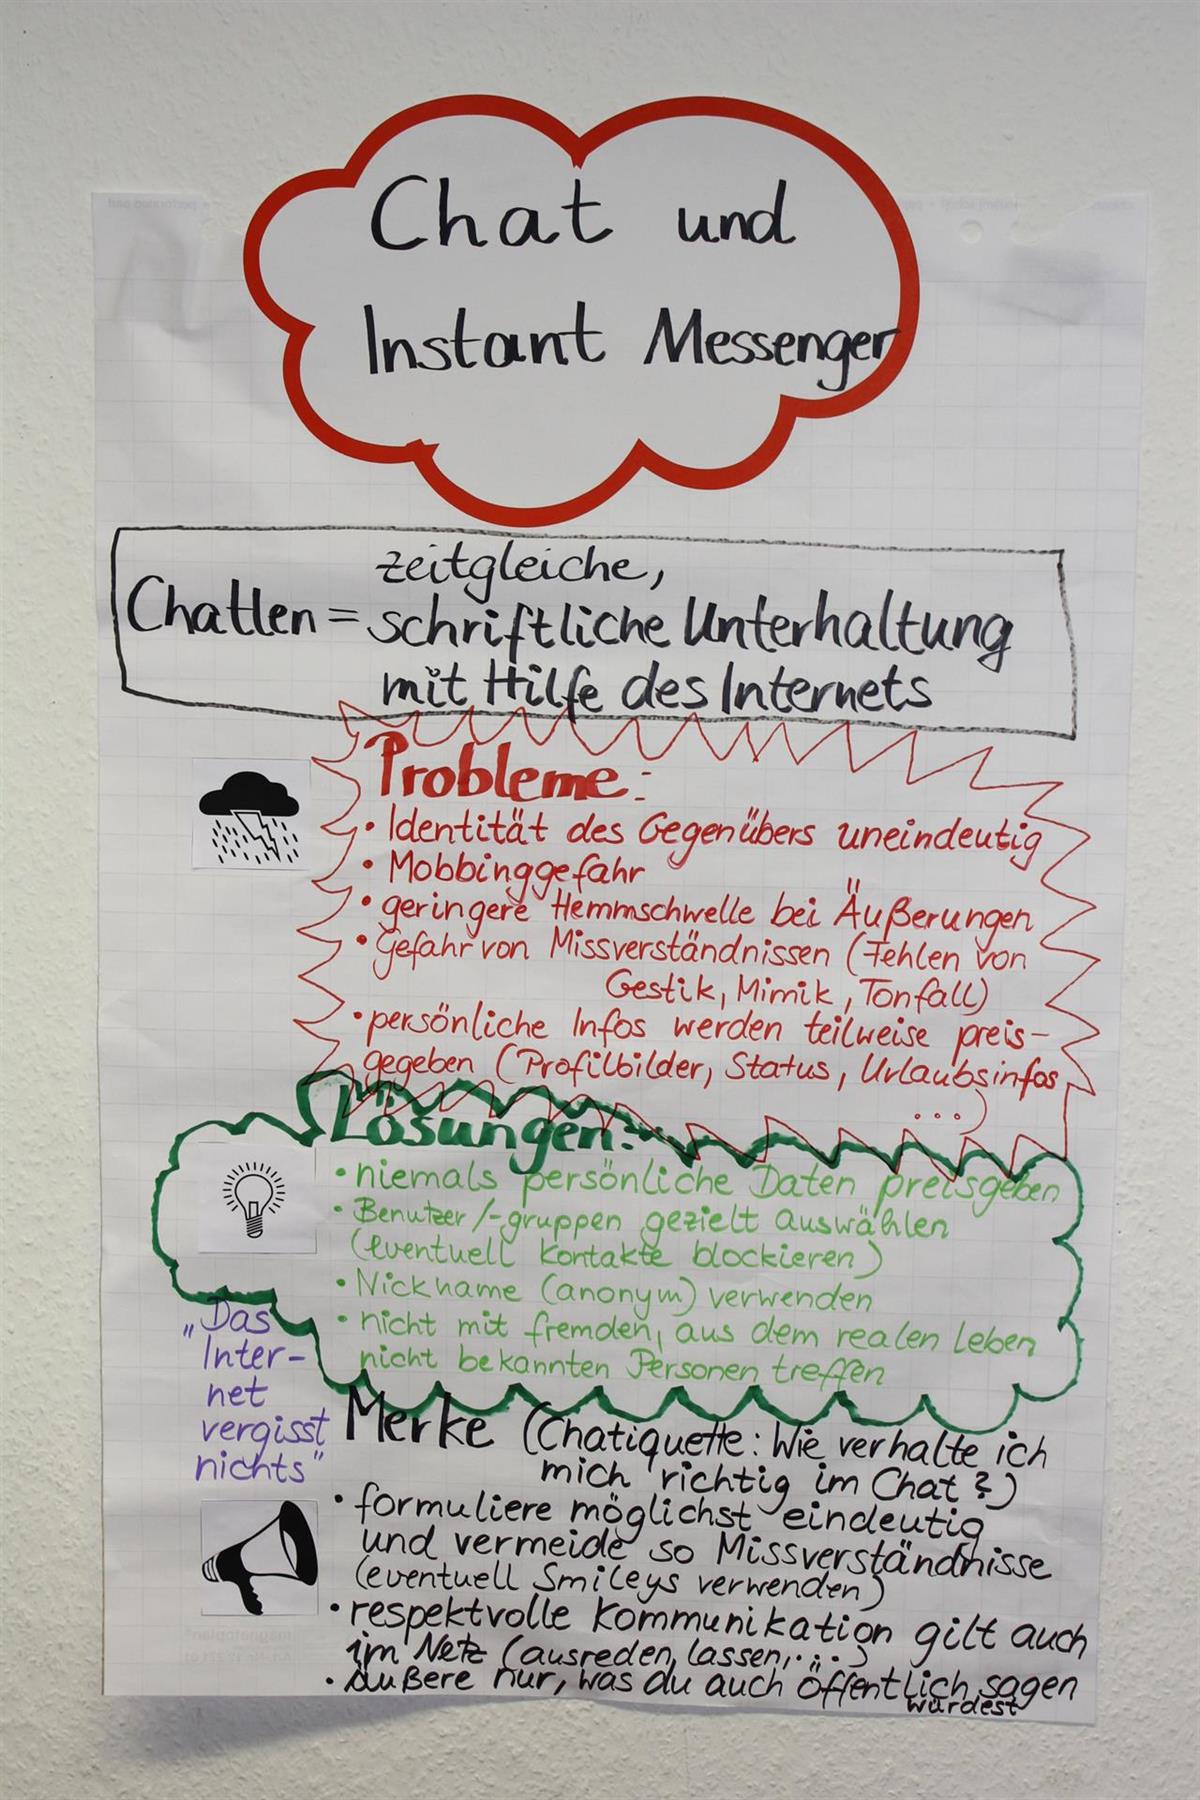 Chat und
Instant Messenger
zeitgleiche,
Chatten = schriftliche Unterhaltung
mit Hilfe des Internets
Probleme:
• Identität des Gegenübers uneindeutig
• Mobbinggefahr
• geringere Hemmschwelle bei Äußerungen
• Gefahr von Missverständnissen (Fehlen von
Gestik, Mimik, Tonfall)
• persönliche Infos werden teilweise preis-
gegeben (Profilbilder, Status, Urlaubsinfos
...)
Lösungen:
• niemals persönliche Daten preisgeben
• Benutzer/-gruppen gezielt auswählen
(eventuell Kontakte blockieren)
• Nickname (anonym) verwenden
• nicht mit fremden, aus dem realen Leben
nicht bekannten Personen treffen
„Das
Inter-
net
vergisst
nichts"
Merke (Chatiquette: Wie verhalte ich
mich richtig im Chat?)
• formuliere möglichst eindeutig
und vermeide so Missverständnisse
(eventuell Smileys verwenden)
• respektvolle Kommunikation gilt auch
im Netz (ausreden lassen, ...)
• äußere nur, was du auch öffentlich sagen
würdest